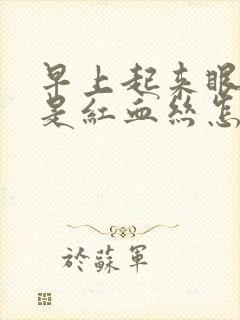 早上起来眼
是红血丝怎
於蘇軍